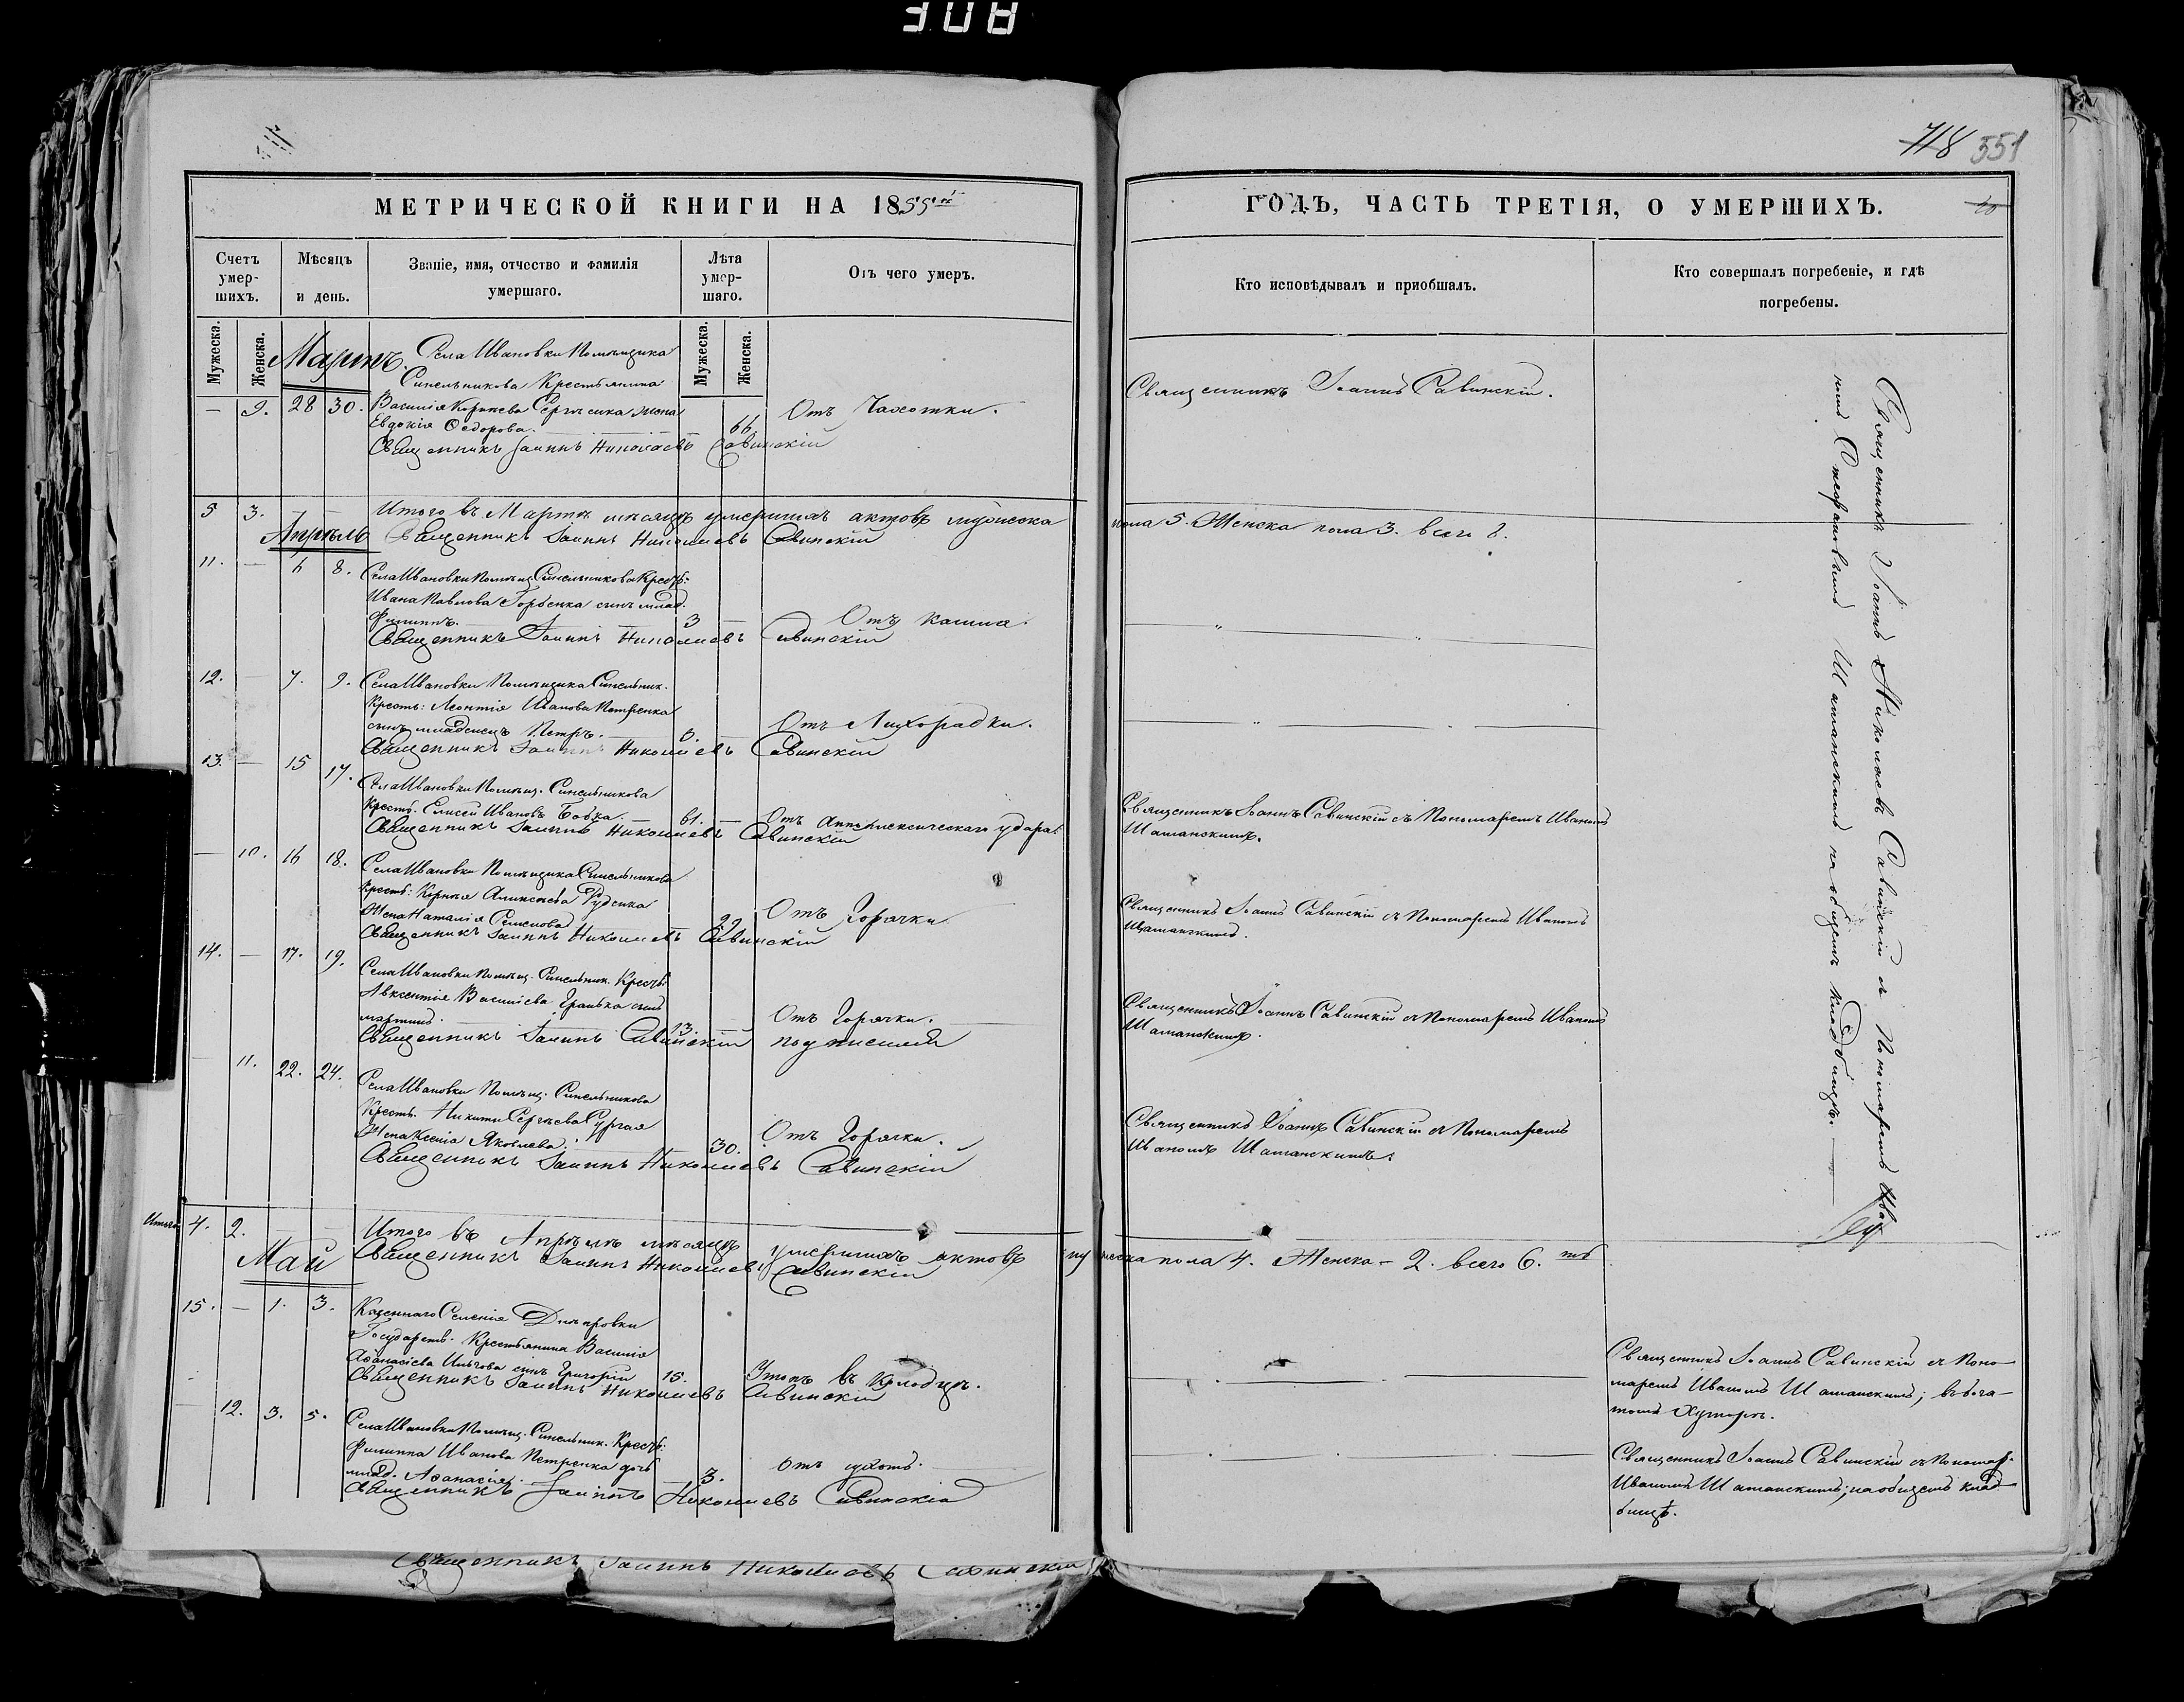 308
718 551
МЕТРИЧЕСКОЙ КНИГИ НА 1855й
ГОДЪ, ЧАСТЬ ТРЕТІЯ, О УМЕРШИХЪ.
Счетъ умер-шихъ.
Мѣсяцъ и день.
Званіе, имя, отчество и фамилія умершаго.
Лѣта умер-шаго.
Отъ чего умеръ.
Кто исповѣдывалъ и пріобщалъ.
Кто совершалъ погребеніе, и гдѣ погребены.
Мужеска.
Женска.
Мужеска.
Женска.
Мартъ.
Села Ивановки Помѣщика
Синельникова Крестьянина
— 9. 28 30. Василія Сергѣенка жена
Евдокія Ѳедорова. 66 Отъ Чахотки.
Священникъ Іоаннъ Савинскій.
Священникъ Іоаннъ Николаевъ Савинскій
5 3. Итого въ Мартѣ мѣсяцѣ умершихъ актовъ мужеска пола 5. Женска пола 3. всего 8.
Апрѣль
Священникъ Іоаннъ Николаевъ Савинскій
11. — 6 8. Села Ивановки Помѣщ. Синельникова Кресть:
Ивана Павлова Горбенка сынъ млад.
Филиппъ. 3 Отъ кашля.
Священникъ Іоаннъ Николаевъ Савинскій
12. — 7. 9. Села Ивановки Помѣщика Синельник.
Кресть: Леонтія Иванова Петренка
сынъ младенецъ Петръ. 3. Отъ Лихорадки.
Священникъ Іоаннъ Николаевъ Савинскій
13. — 15 17. Села Ивановки Помѣщ. Синельникова
Кресть. Елисей Ивановъ Бабка. 61. Отъ Апоплексическаго удара.
Священникъ Іоаннъ Савинскій съ Пономаремъ Иваномъ
Шаманскимъ.
Священникъ Іоаннъ Николаевъ Савинскій
— 10. 16 18. Села Ивановки Помѣщика Синельникова
Кресть: Корнея Алексѣева Руденка
Жена Наталія Семенова 22 Отъ Горячки
Священникъ Іоаннъ Савинскій съ Пономаремъ Иваномъ
Шаманскимъ.
Священникъ Іоаннъ Николаевъ Савинскій
14. — 17. 19. Села Ивановки Помѣщ. Синельник. Кресть:
Авксентія Василіева сынъ
Мартинъ. 13. Отъ Горячки.
Священникъ Іоаннъ Савинскій съ Пономаремъ Иваномъ
Шаманскимъ.
Священникъ Іоаннъ Савинскій подписался
— 11. 22. 24. Села Ивановки Помѣщ. Синельникова
Кресть. Никиты Сергѣева
Жена Ксенія Яковлева. 30. Отъ Горячки.
Священникъ Іоаннъ Савинскій съ Пономаремъ
Иваномъ Шаманскимъ.
Священникъ Іоаннъ Николаевъ Савинскій
Священникъ Іоаннъ Николаевъ Савинскій съ Пономаремъ
Стефановымъ Шаманскимъ на общемъ кладбищѣ.
Итого 4. 2. Итого въ Апрѣлѣ мѣсяцѣ умершихъ актовъ мужеска пола 4. Женска – 2. всего 6.ть
Май
Священникъ Іоаннъ Николаевъ Савинскій
15. — 1. 3. Казеннаго Селенія Днѣпровки
Государств. Крестьянина Василія
Аѳанасіева сынъ Григорій 15. Утопъ въ Колодцѣ.
Священникъ Іоаннъ Савинскій съ Поно-
маремъ Иваномъ Шаманскимъ;
Хуторѣ.
Священникъ Іоаннъ Николаевъ Савинскій
— 12. 3. 5. Села Ивановки Помѣщ. Синельник. Кресть:
Филиппа Иванова Петренка дочь
млад. Аѳанасія. 3. Отъ
Священникъ Іоаннъ Савинскій съ Пономар.
Иваномъ Шаманскимъ; на общемъ клад-
бищѣ.
Священникъ Іоаннъ Николаевъ Савинскій
Священникъ Іоаннъ Николаевъ Савинскій